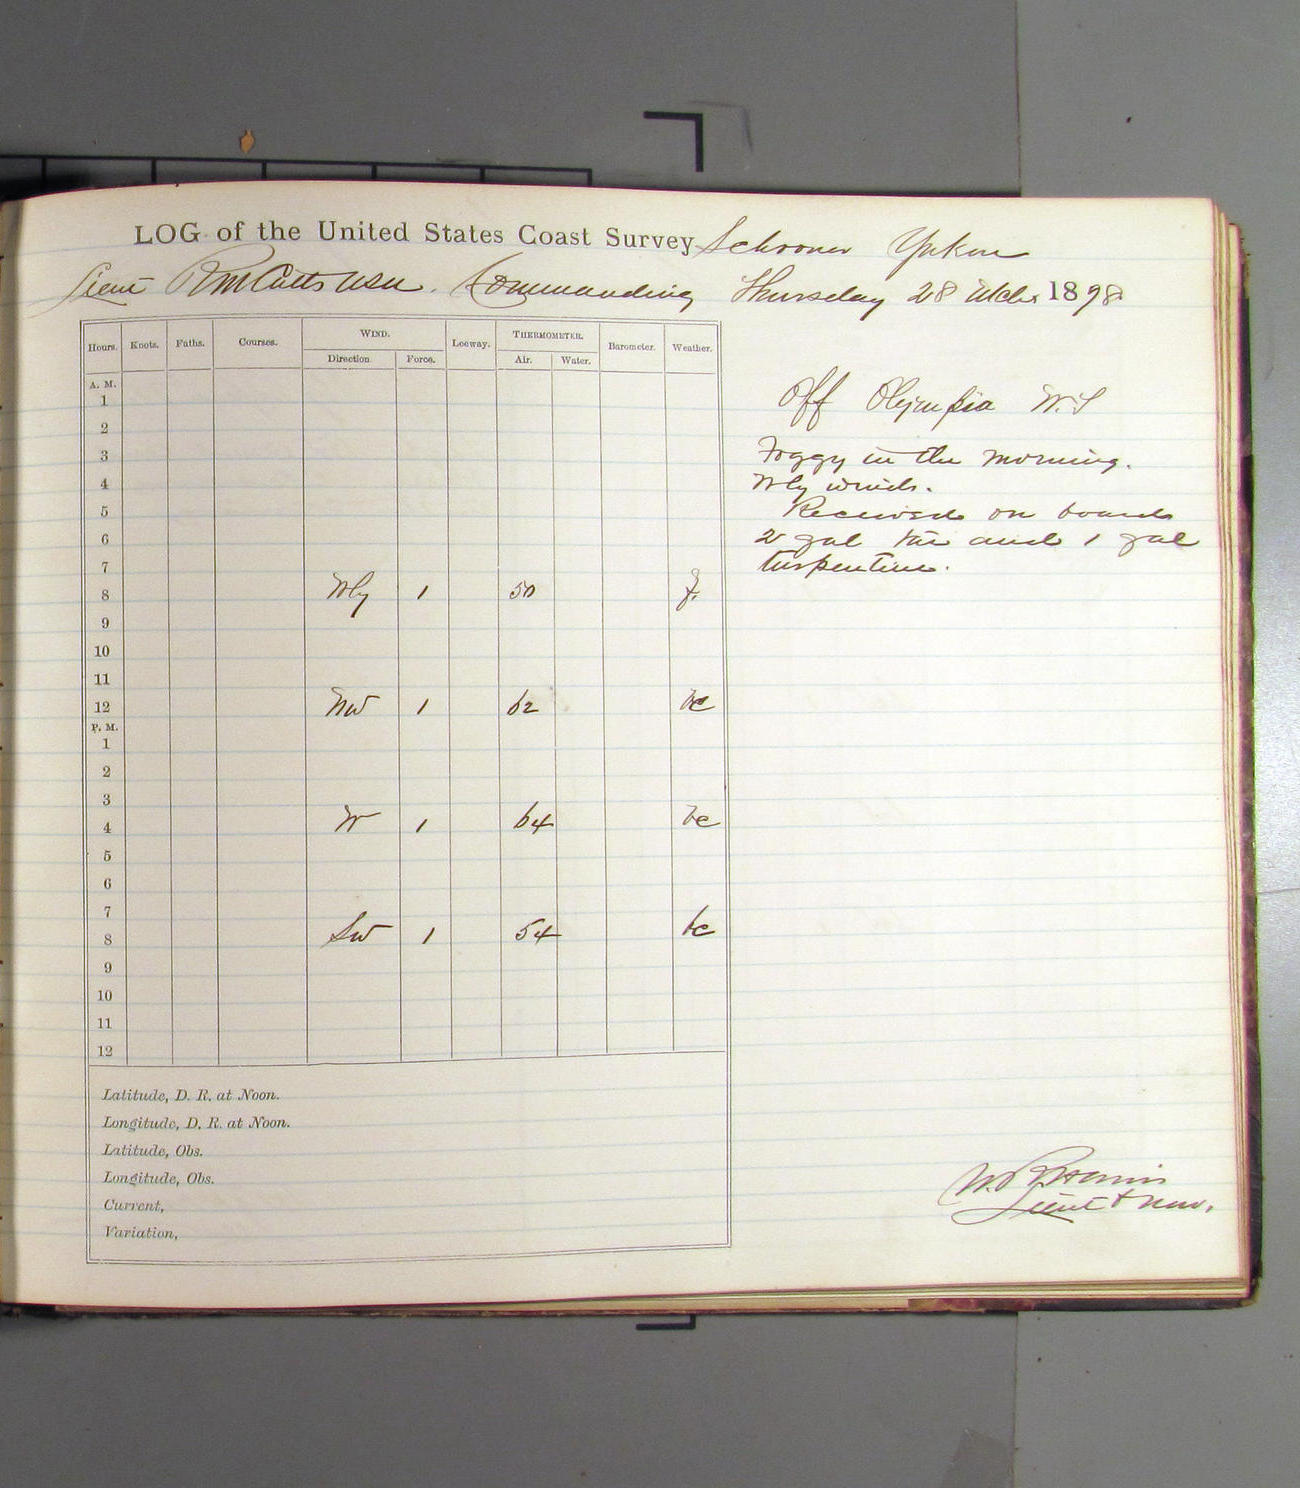 LOG of the United States Coast Survey Schooner Yukon
Lieut R M Cutts USN. Commanding Thursday 28 Mch. 1898
Hours. Knots. Faths. Courses. WIND. Leeway. THERMOMETER. Barometer. Weather.
Direction. Force. Air. Water.
A. M.
1
2
3
4
5
6
7
8 Wly 1 50 f.
9
10
11
12 NW 1 62 bc
P. M.
1
2
3
4 W 1 64 bc
5
6
7
8 SW 1 54 bc
9
10
11
12
Latitude, D. R. at Noon.
Longitude, D. R. at Noon.
Latitude, Obs.
Longitude, Obs.
Current,
Variation,
Off Olympia W.T
Foggy in the morning.
Wly winds.
Received on board
2 gal and 1 gal
turpentine.
Lieut & Nav.